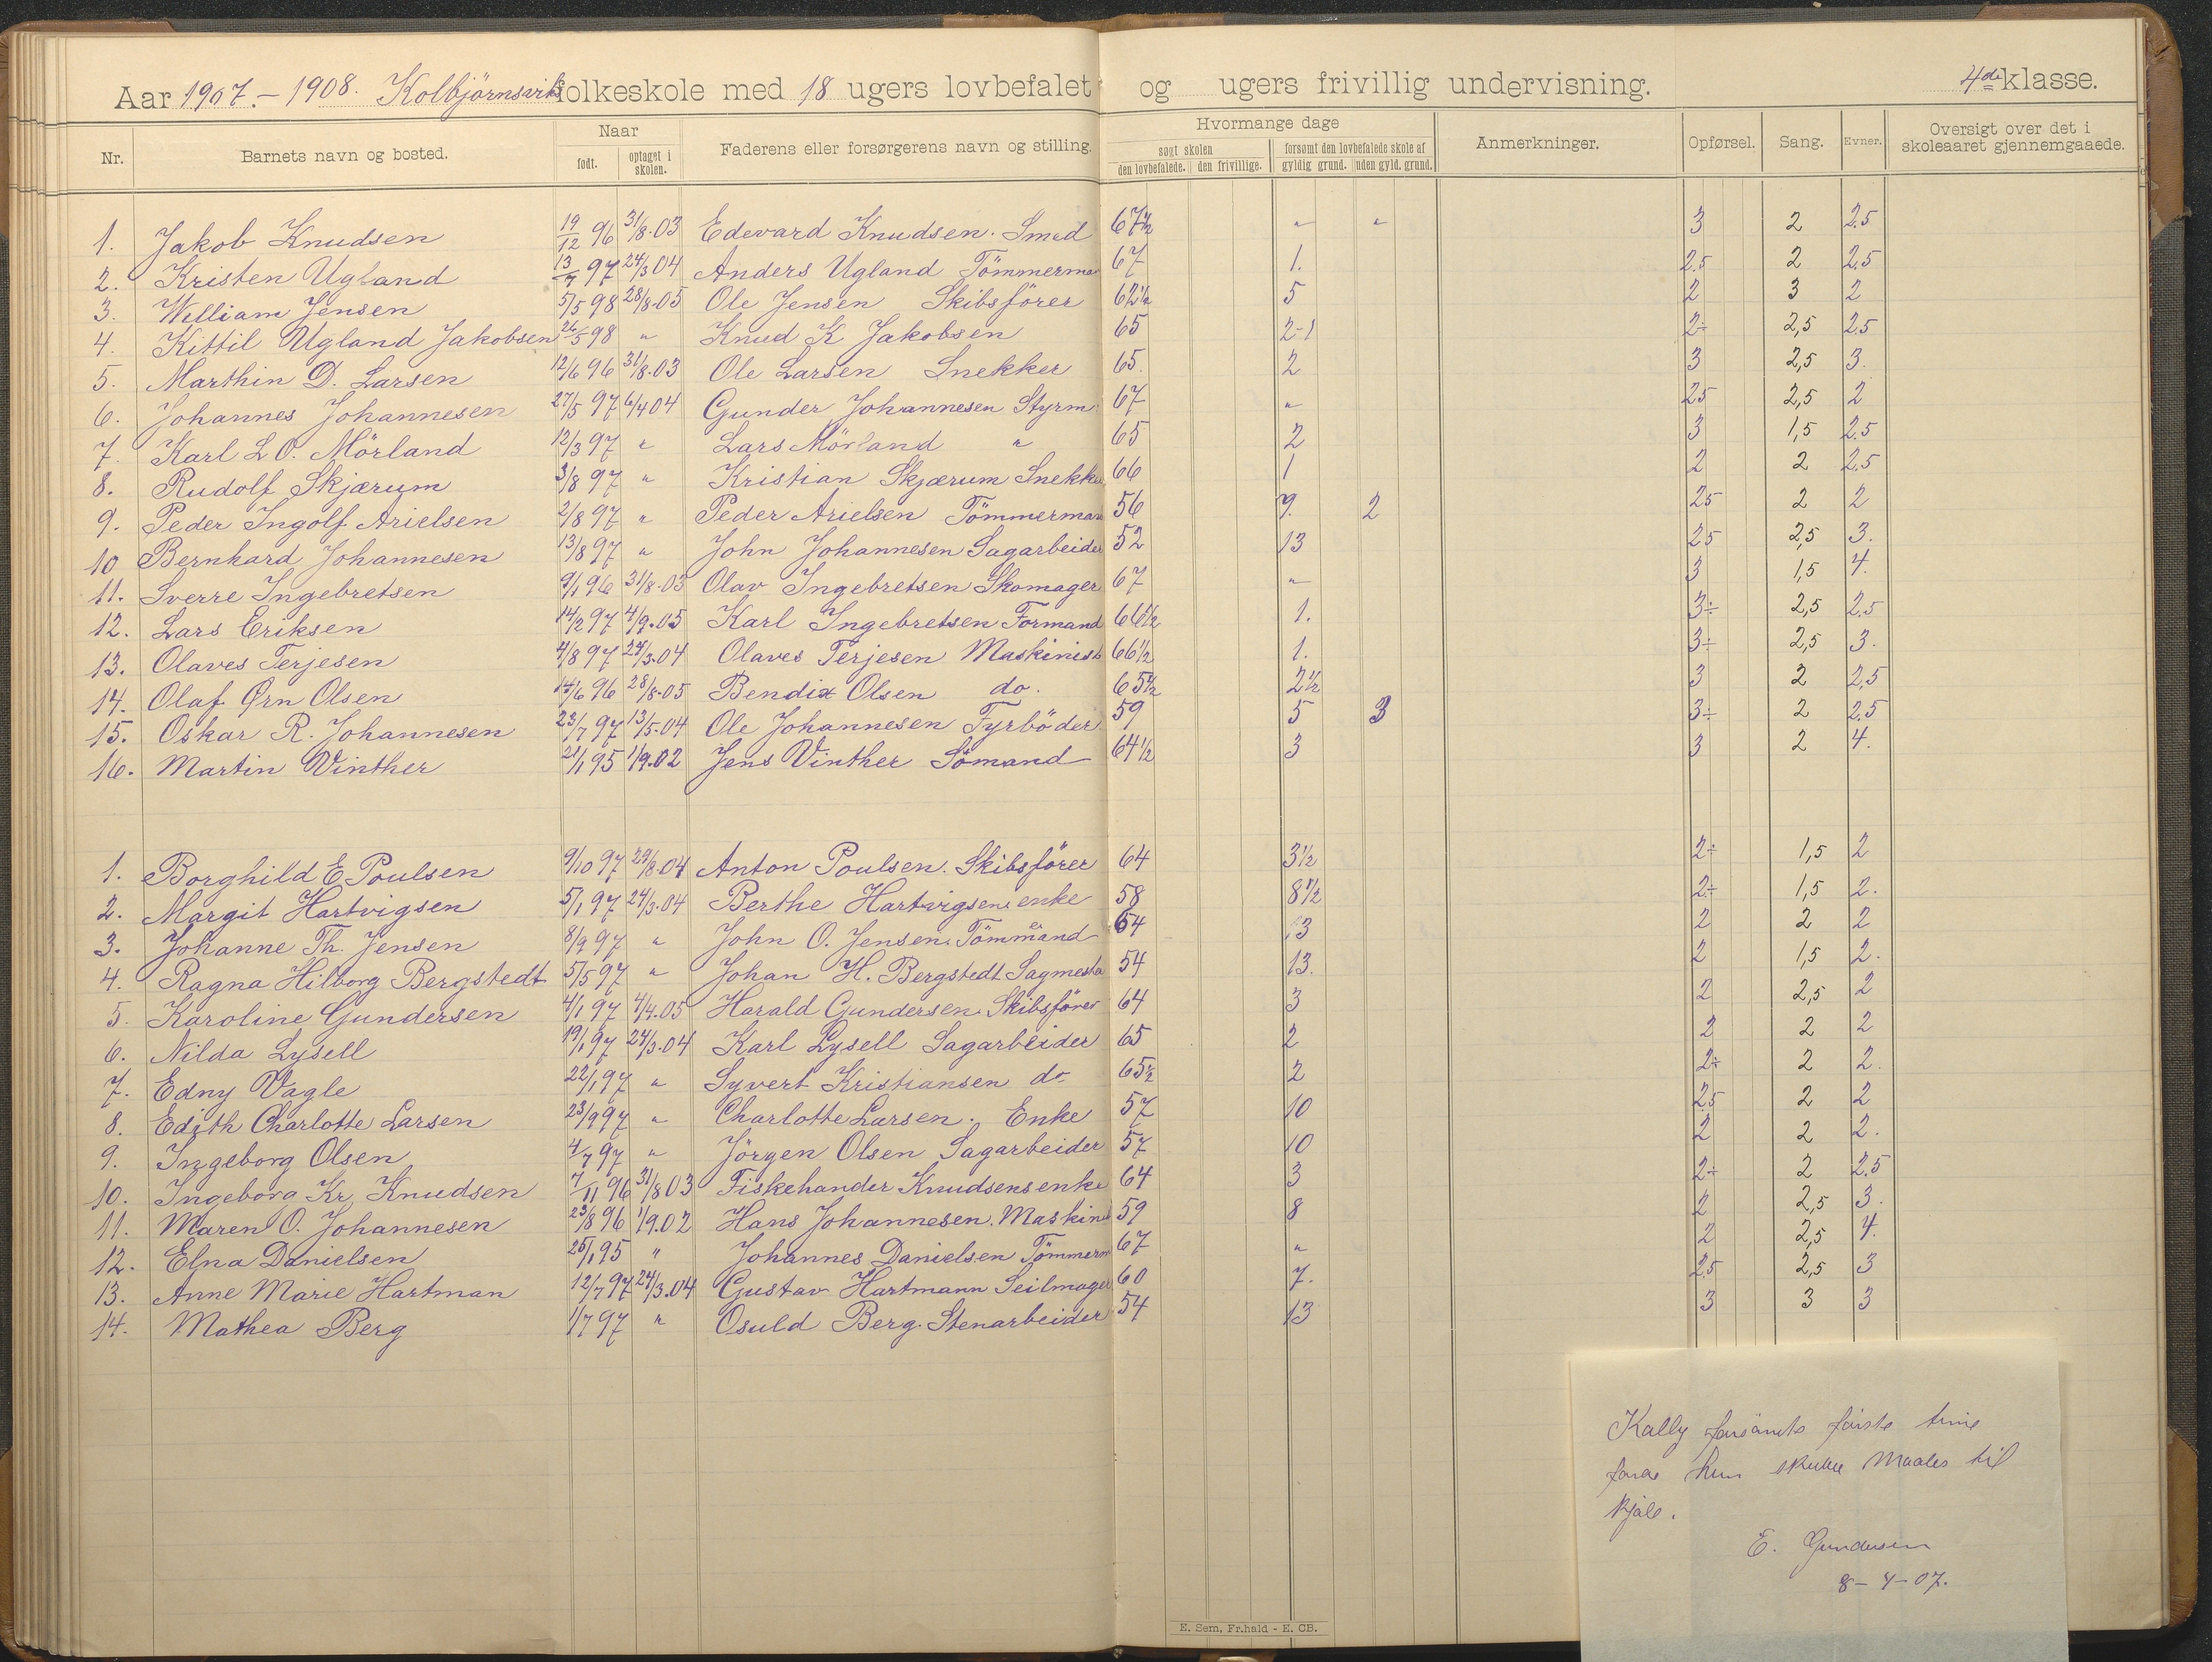 Aar 1907.-1908. Kolbjörnsvik folkeskole med 18 ugers lovbefalet og ugers frivillig undervisning. 4de klasse.
Nr. Barnets navn og bosted. Naar født. optaget i skolen. Faderens eller forsørgerens navn og stilling. Hvormange dage søgt skolen den lovbefalede. den frivillige. forsømt den lovbefalede skole af gyldig grund. uden gyld. grund. Anmerkninger. Opførsel. Sang. Evner. Oversigt over det i skoleaaret gjennemgaaede.
1. Jakob Knudsen 19/12 96 31/8.03 Edevard Knudsen. Smed 67 1/2 " " 3 2 2.5
2. Kristen Ugland 13/7 97 24/3 04 Anders Ugland Tömmerma 67 1. 2.5 2 2.5
3. William Jensen 5/5 98 28/8.05 Ole Jensen Skibsförer 62 1/2 5 2 3 2
4. Kittil Ugland Jakobsen 26/5 98 " Knud K Jakobsen 65 2-1 2÷ 2,5 2.5
5. Marthin D. Larsen 12/6 96 31/8.03 Ole Larsen Snekker 65. 2 3 2,5 3.
6. Johannes Johannesen 27/5 97 6/4 04 Gunder Johannesen Styrm. 67 " 25 2,5 2
7. Karl L O. Mörland 12/3 97 " Lars Mörland " 65 2 3 1,5 2.5
8. Rudolf Skjærum 3/8 97 " Kristian Skjærum Snekker 66 1 2 2 2.5
9. Peder Ingolf Arielsen 2/8 97 " Peder Arielsen Tömmerman 56 9. 2 25 2 2
10 Bernhard Johannesen 13/8 97 " John Johannesen Sagarbeider 52 13 25 2,5 3.
11. Sverre Ingebretsen 9/1 96 31/8.03 Olav Ingebretsen Skomager 67 " 3 1,5 4.
12. Lars Eriksen 14/2 97 4/9.05 Karl Ingebretsen Formand 66 1/2 1. 3÷ 2,5 2.5
13. Olaves Terjesen 4/8 97 24/3.04 Olaves Terjesen Maskinist 66 1/2 1. 3÷ 2,5 3.
14. Olaf Ørn Olsen 14/6 96 28/8.05 Bendix Olsen do. 65 1/2 2 1/2 3 2 2,5
15. Oskar R. Johannesen 23/7 97 13/5.04 Ole Johannesen Fyrböder 59 5 3 3÷ 2 2.5
16. Martin Vinther 21/1 95 1/9.02 Jens Vinther Sömand 64 1/2 3 3 2 4.
1. Borghild E Poulsen 9/10 97 29/8.04 Anton Poulsen. Skibsförer 64 3 1/2 2÷ 1,5 2
2. Margit Hartvigsen 5/1 97 24/3.04 Berthe Hartvigsens enke 58 8 1/2 2÷ 1,5 2.
3. Johanne Th. Jensen 8/9 97 " John O. Jensen. Tömmermand 54 13 2 2 2
4. Ragna Hilborg Bergstedt 5/5 97 " Johan H. Bergstedt Sagmester 54 13. 2 1,5 2.
5. Karoline Gundersen 4/1 97 4/4.05 Harald Gundersen. Skibsförer 64 3 2 2,5 2
6. Nilda Lysell 19/1 97 24/3.04 Karl Lysell Sagarbeider 65 2 2 2 2
7. Edny Vagle 22/1 97 " Syvert Kristiansen do 65 1/2 2 2÷ 2 2.
8. Edith Charlotte Larsen 23/9 97 " Charlotte Larsen. Enke 57 10 2.5 2 2
9. Ingeborg Olsen 4/7 97 " Jörgen Olsen Sagarbeider 57 10 2 2 2.
10. Ingeborg Kr. Knudsen 7/11 96 31/8 03 Fiskehander Knudsens enke 64 3 2÷ 2 2.5
11. Maren O. Johannesen 23/8 96 1/9.02 Hans Johannesen. Maskinist 59 8 2 2,5 3.
12. Elna Danielsen 25/1 95 " Johannes Danielsen Tömmerm 67 " 2 2,5 4.
13. Anne Marie Hartman 12/7 97 24/3.04 Gustav Hartmann Seilmager 60 7. 25 2,5 3
14. Mathea Berg 1/7 97 " Osuld Berg. Stenarbeider 54 13 3 3 3
Kally försömte förste time
hun skulle maales til
kjole.
E. Gundersen
8-4-07.
E. Sem, Fr.hald - E. CB.